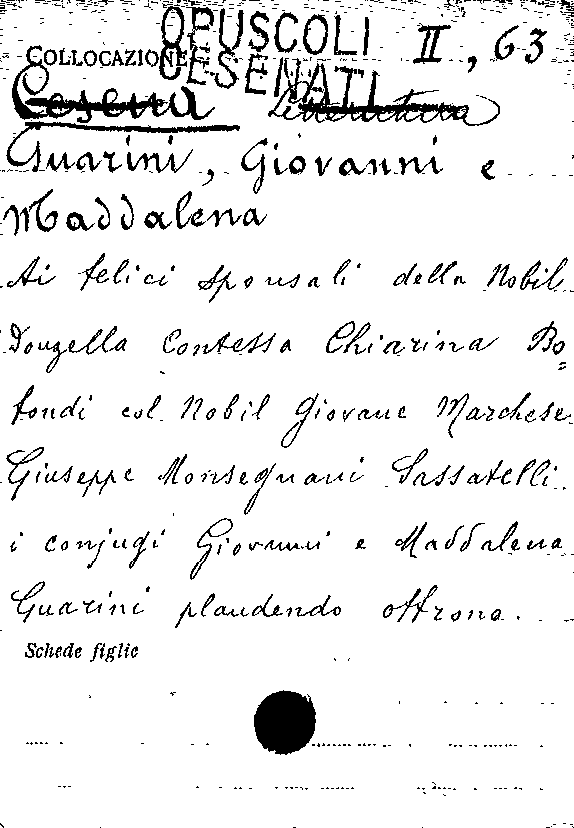 OPUSCOLI II, 63
COLLOCAZIONE CESENATI
Cesena Letteratura
Guarini, Giovanni e
Maddalena
Ai felici sponsali della Nobil
Donzella Contessa Chiarina Bo=
fondi col Nobil Giovane Marchese
Giuseppe Monsegnani Sassatelli
i conjugi Giovanni e Maddalena
Guarini plaudendo offrono.
Schede figlie